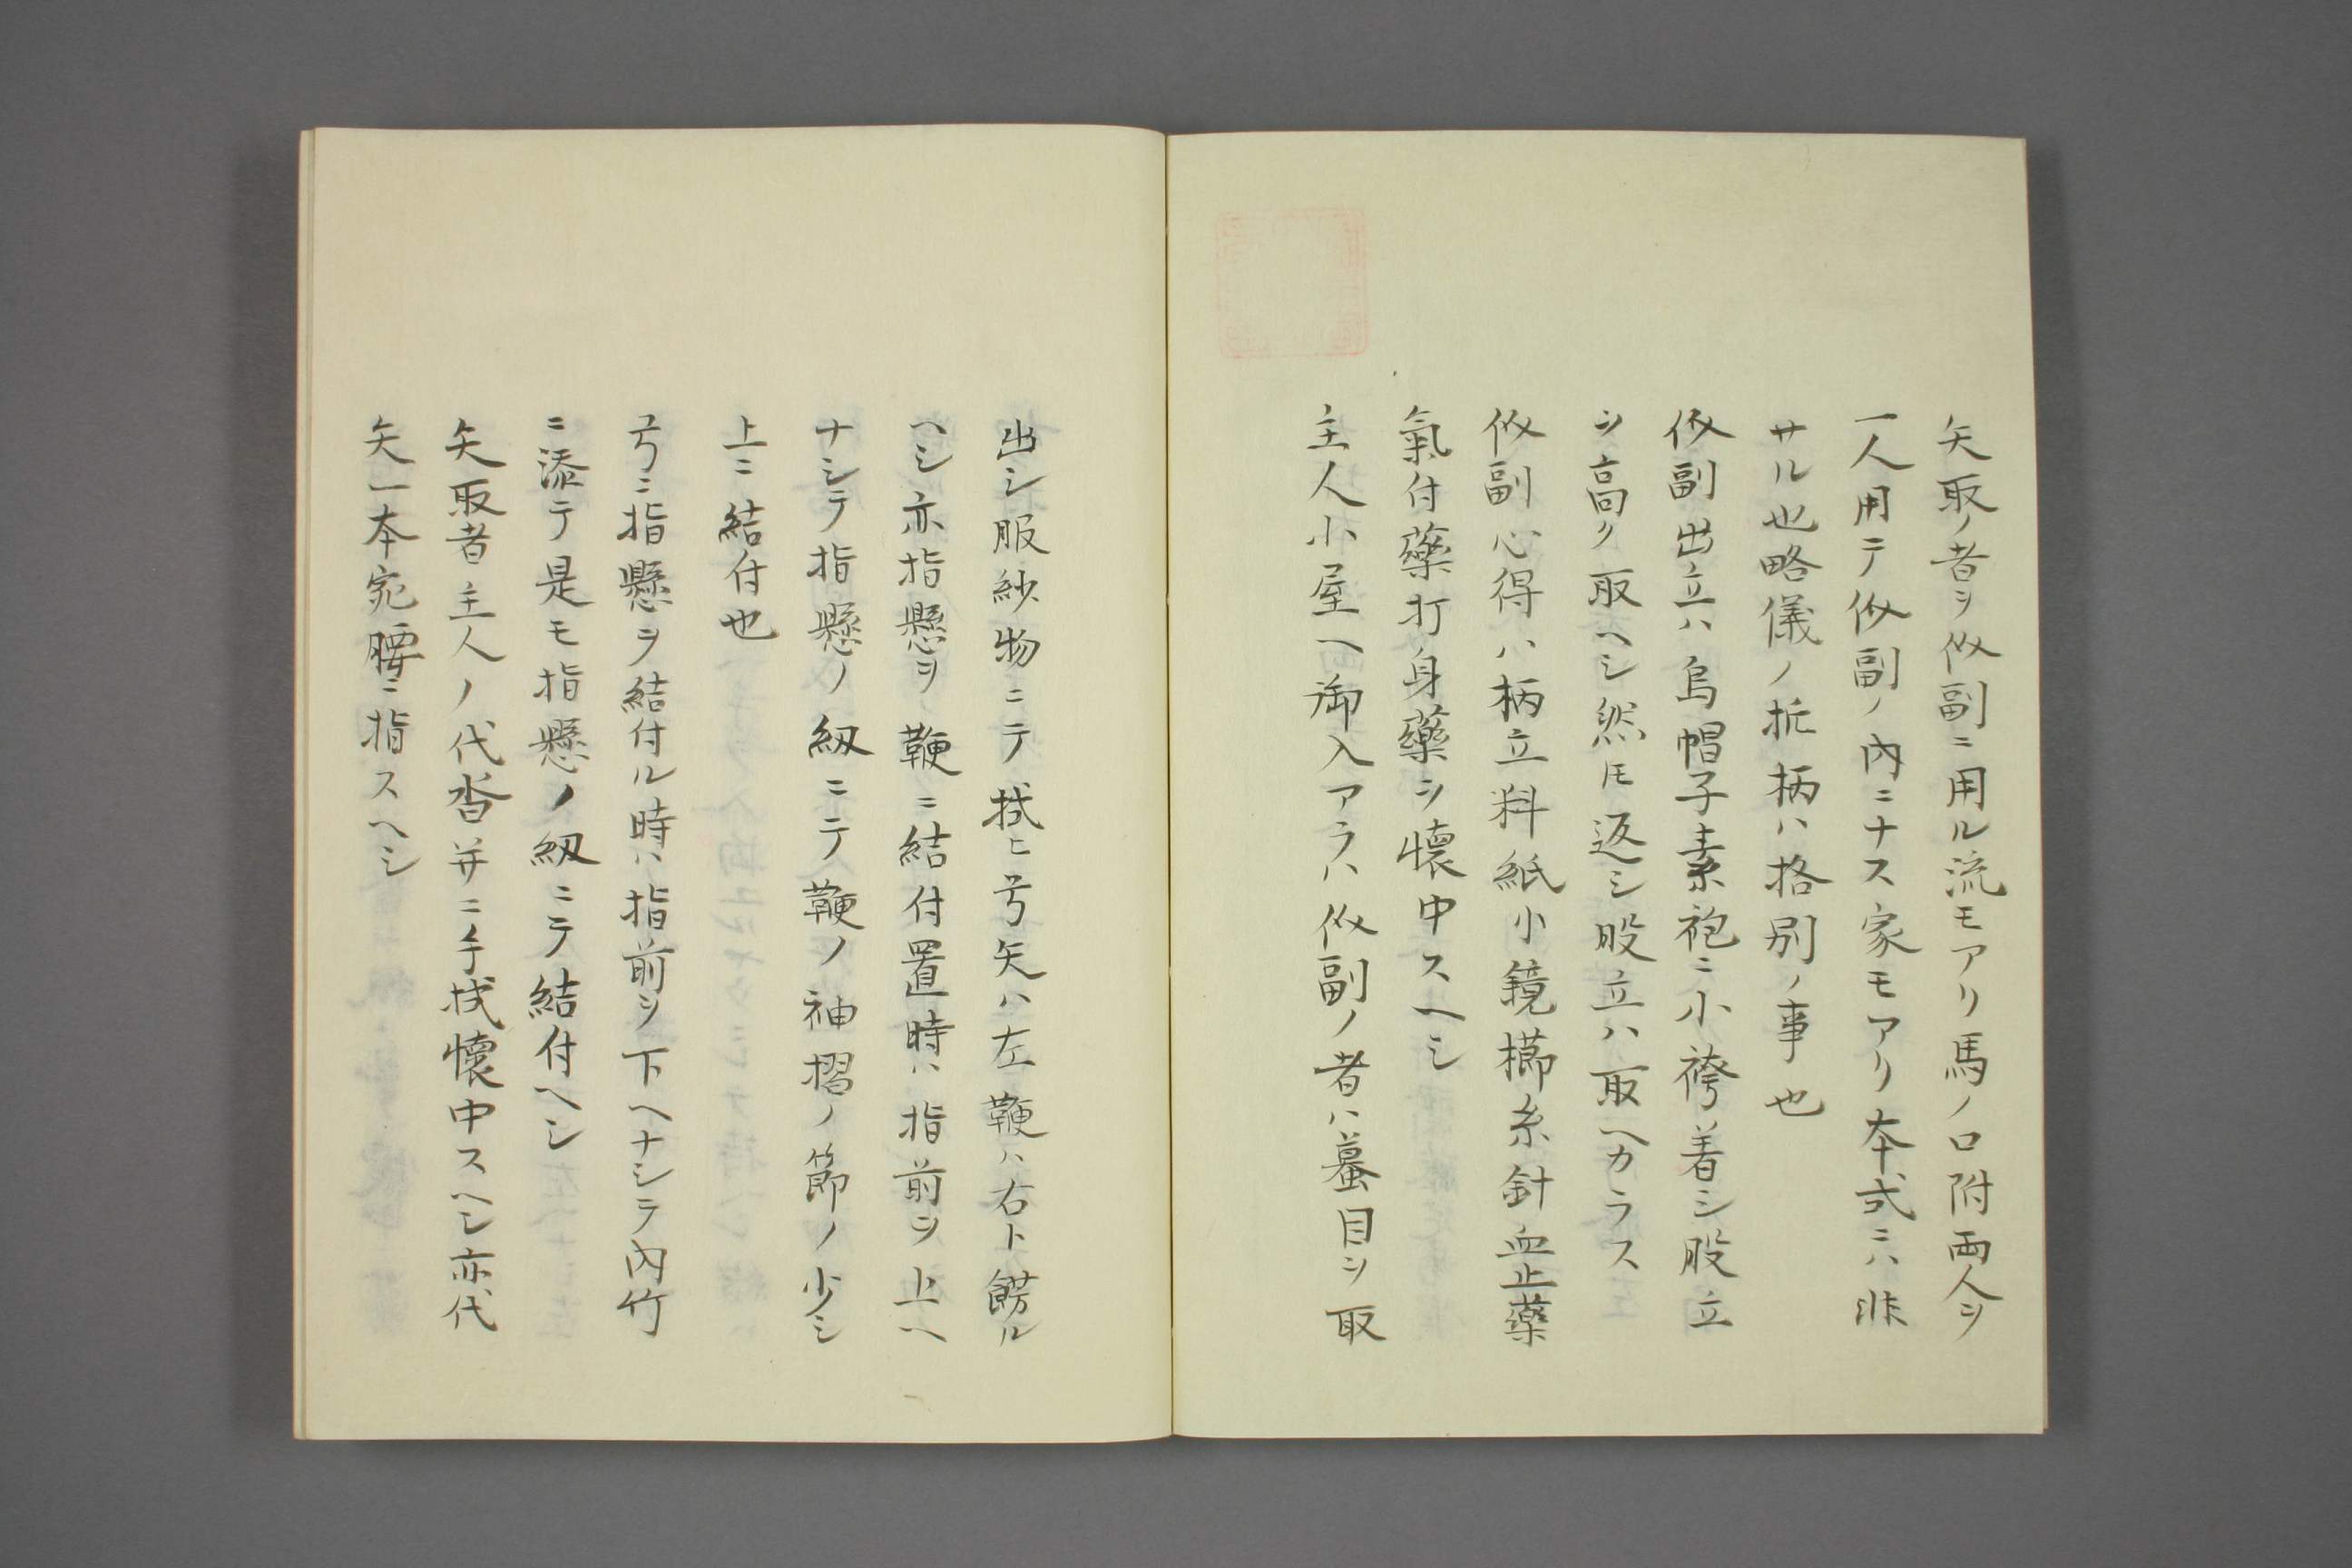 矢取ノ者ヲ似副ニ用ル流モアリ馬ノ口附両人ヲ
一人用テ似副ノ内ニナス家モアリ本式ニハ非
サル也略儀ノ折柄ハ格別ノ事也
似副出立ハ烏帽子素袍ニ小袴着シ股立
ヲ高ク取ヘシ然ㇳモ返シ股立ハ取ヘカラス
似副心得ハ柄立料紙小鏡櫛糸針血止藥
氣付藥打身藥ヲ懐中スヘシ
主人小屋ヘ御入アラハ似副ノ者ハ蟇目ヲ取
出シ服紗物ニテ拭ヒ弓矢ハ左鞭ハ右ト餝ル
ヘシ亦指懸ヲ鞭ニ結付置時ハ指前ヲ上ヘ
ナシテ指懸ノ紐ニテ鞭ノ袖摺ノ節ノ少シ
上ニ結付也
弓ニ指懸ヲ結付ル時ハ指前ヲ下ヘナシテ内竹
ニ添テ是モ指懸ノ紐ニテ結付ヘシ
矢取者主人ノ代沓并ニ手拭懐中スヘシ亦代
矢一本宛腰ニ指スヘシ